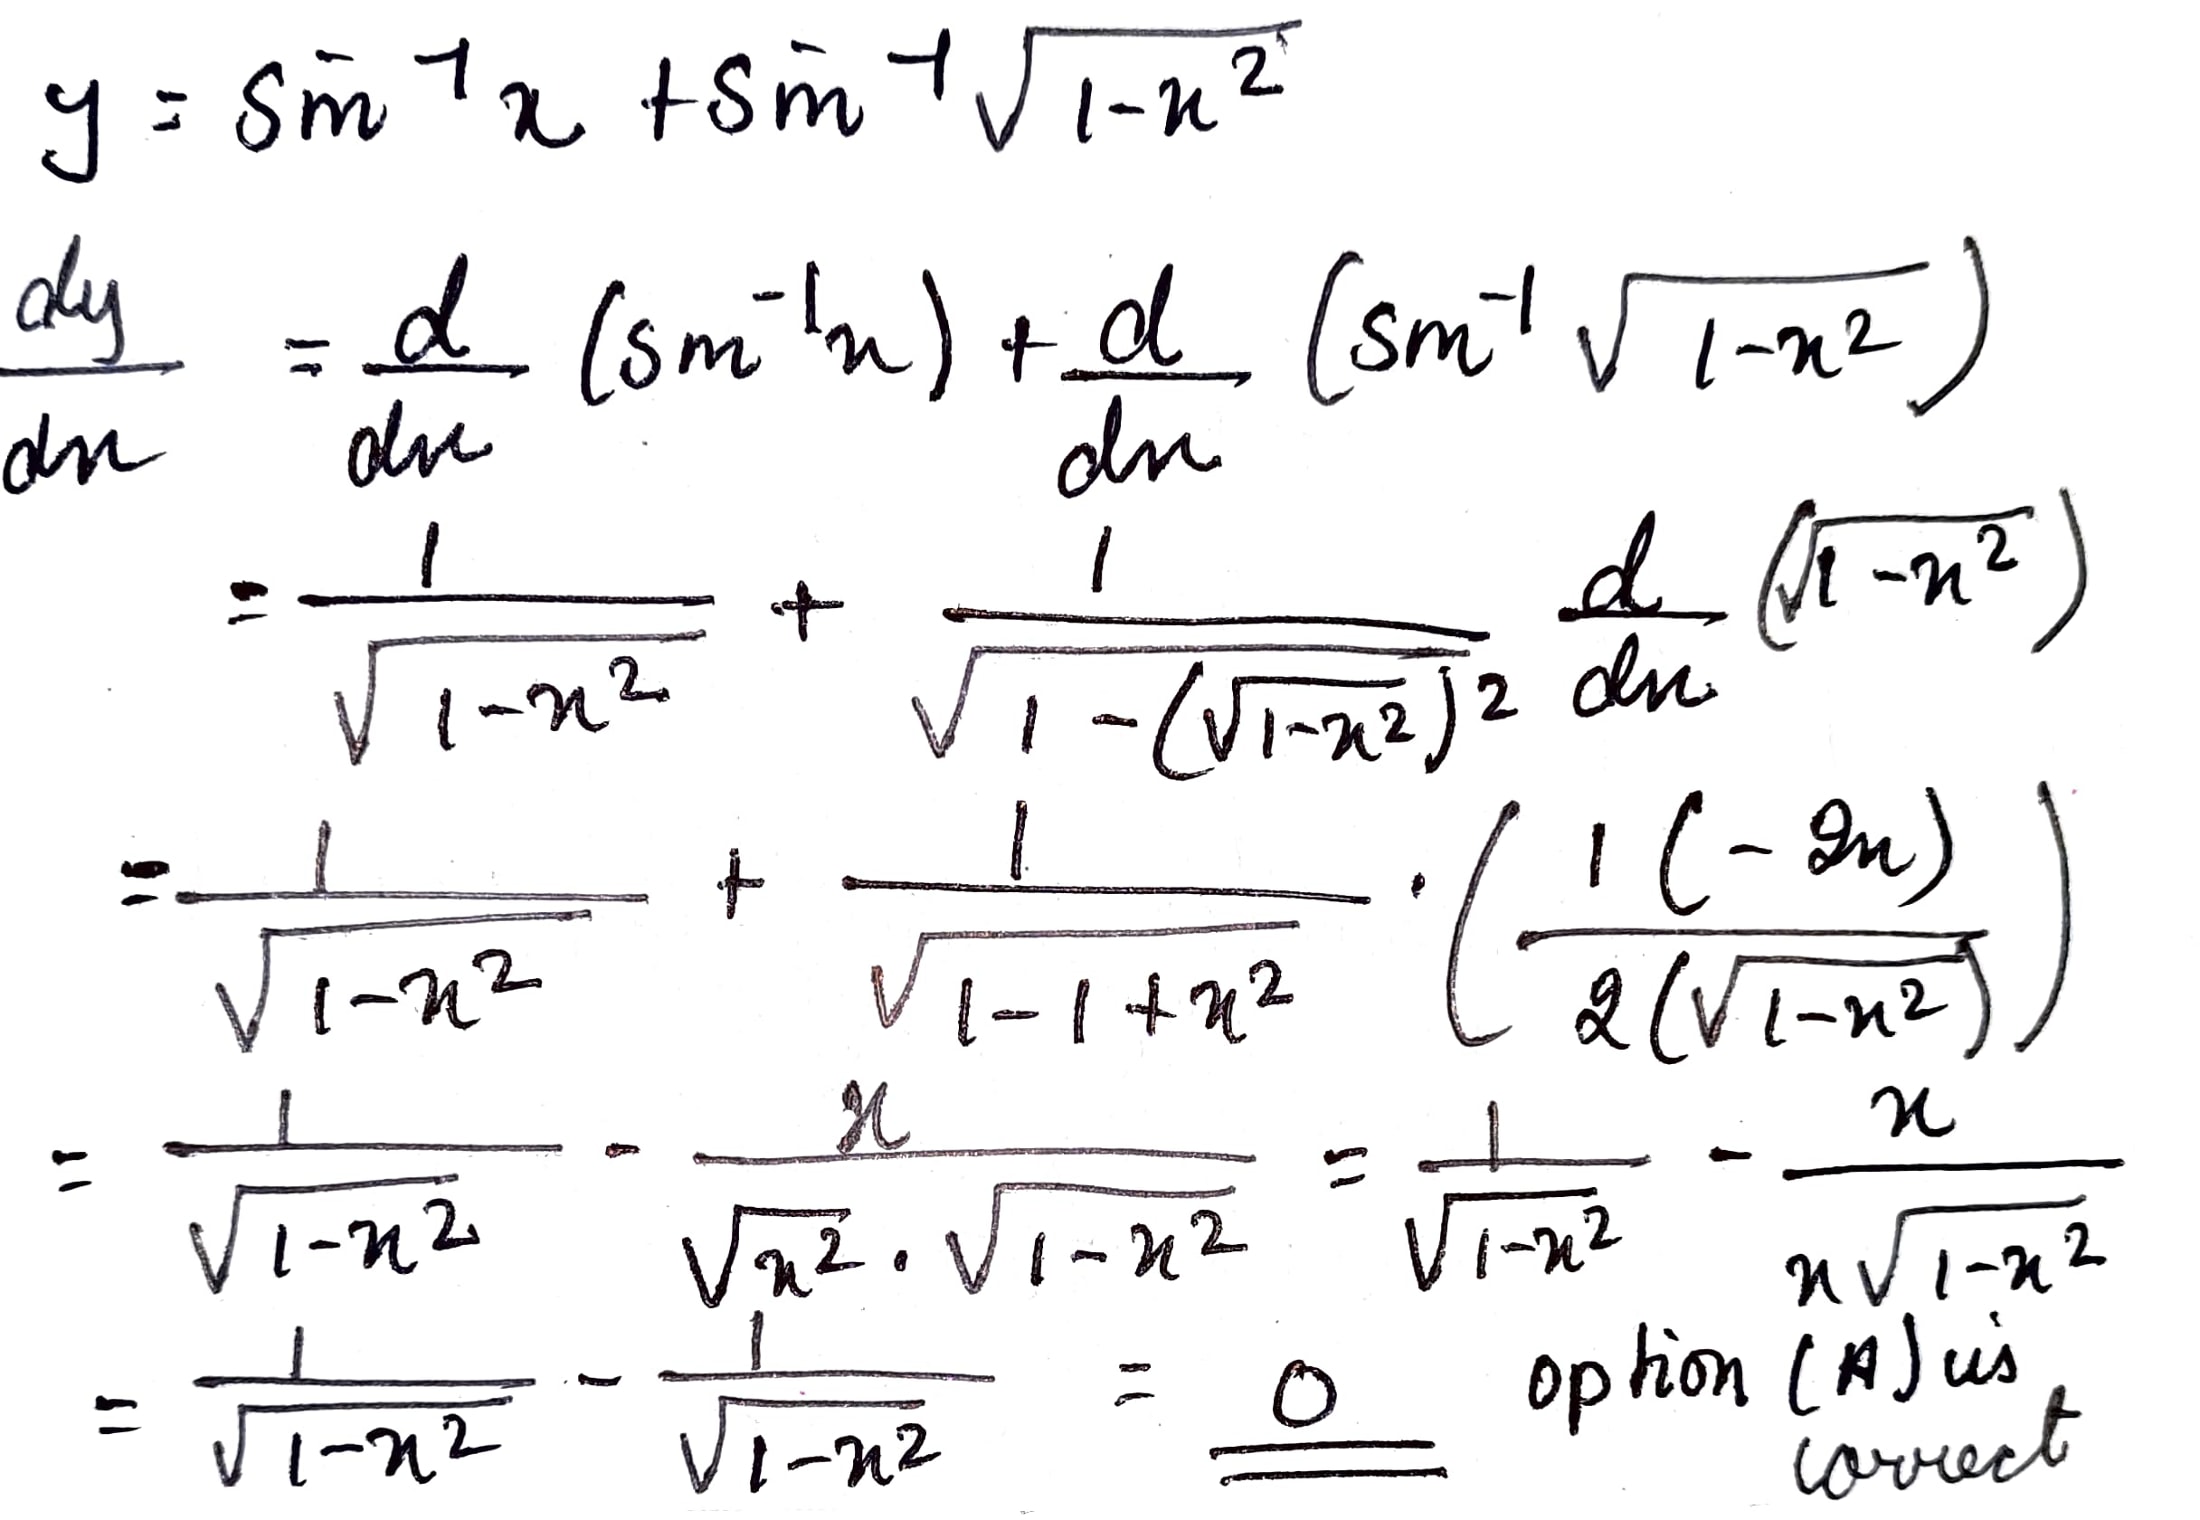 y = sin⁻¹ x + sin⁻¹ √(1-x²)
dy/dx = d/dx (sin⁻¹x) + d/dx (sin⁻¹ √(1-x²))
= 1/√(1-x²) + 1/√(1-(√(1-x²))²) d/dx (√(1-x²))
= 1/√(1-x²) + 1/√(1-1+x²) · (1(-2x)/2(√(1-x²)))
= 1/√(1-x²) - x/(√x² · √(1-x²)) = 1/√(1-x²) - x/(x√(1-x²))
= 1/√(1-x²) - 1/√(1-x²) = 0 option (A) is
correct